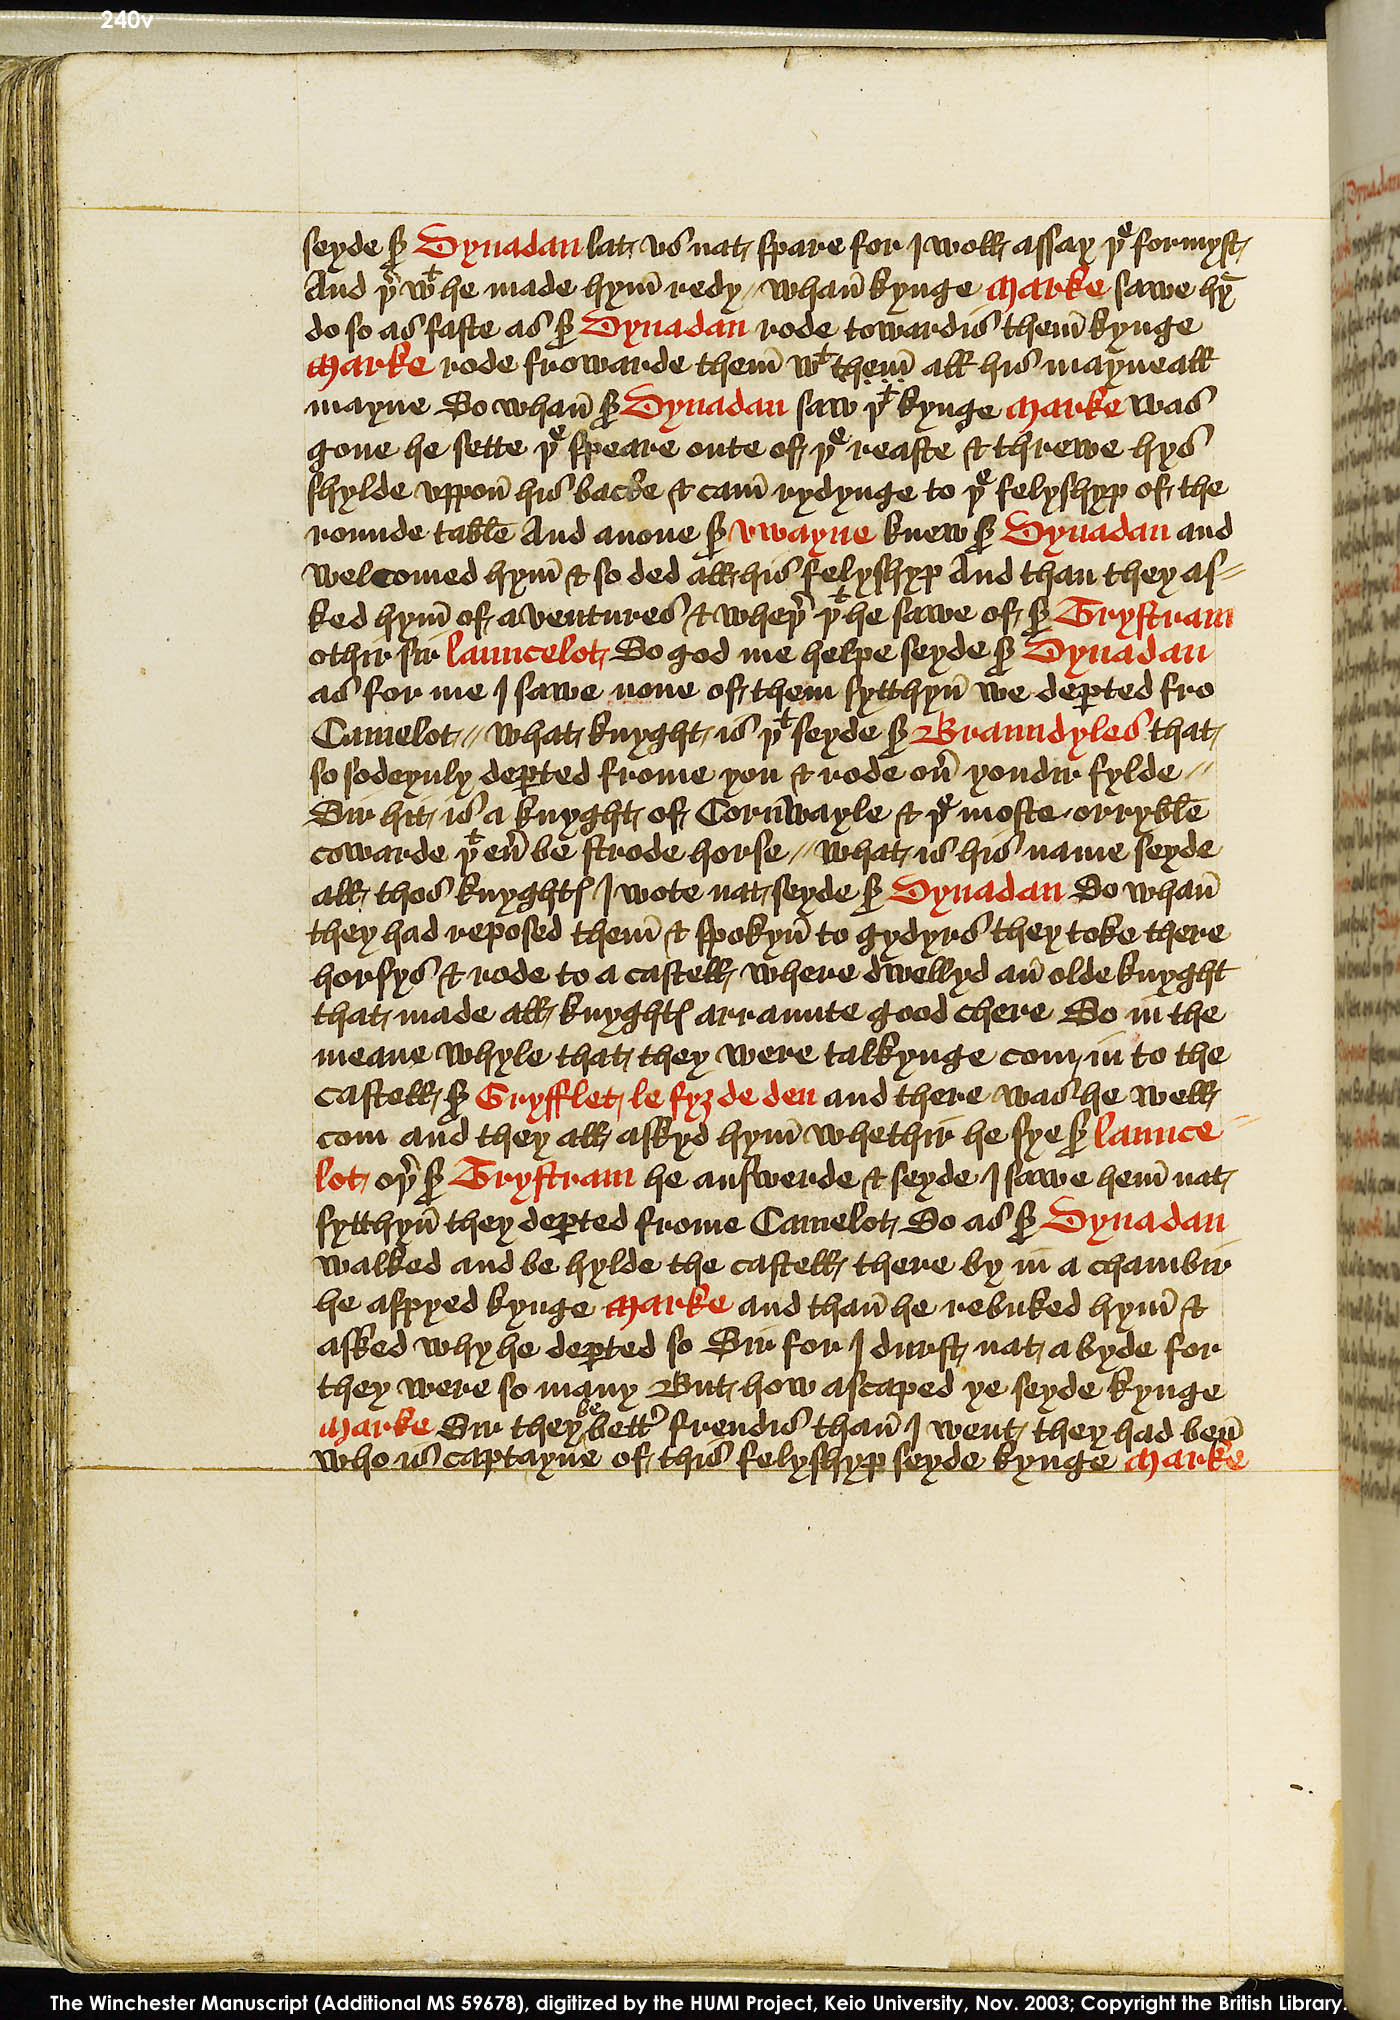 240v
seyde ẜ Dynadan lat vs nat spare for I woll assay þͤ formyst
And þ̉ wͭ he made hym̄ redy // whan̄ kynge Marke sawe hȳ
do so as faste as ẜ Dynadan rode towardis them̄ kynge
Marke rode frowarde them̄ wͭ ṭḥẹṃ̄ all his mayneall
mayne So whan̄ ẜ Dynadan saw þͭ kynge Marke was
gone he sette þͤ speare oute of þͤ reaste & threwe hys
shylde vppon̄ his backe & cam̄ rydynge to þͤ felyshyp of the
rounde table And anone ẜ vwayne knew ẜ Dynadan and
welcomed hym̄ & so ded all his felyshyp And than they as=
ked hym̄ of aventures & wheþ̉ þͭ he sawe of ẜ Trystram
othir sir launcelot So god me helpe seyde ẜ Dynadan
as for me I sawe none of them sytthyn̄ we deꝑted fro
Camelot // what knyght is þͭ seyde ẜ Braundyles that
so sodeynly deꝑted frome you & rode oủ yondir fylde //
Sir hit is a knyght of Cornwayle & þͤ moste orryble
cowarde þͭ eủ be strode horse // what is his name seyde
all thos knyghtꝭ I wote nat seyde ẜ Dynadan So whan̄
they had reposed them̄ & spokyn̄ to gydyrs they toke there
horsys & rode to a castell where dwellyd an̄ olde knyght
that made all knyghtꝭ arraunte good chere So in the
meane whyle that they were talkynge com in to the
castell ẜ Gryfflet le fyz de deu and there was he well
com and they all askyd hym̄ whethir he sye ẜ launce=
lot oþ̉ ẜ Trystram he answerde & seyde I sawe hem̄ nat
sytthyn̄ they deꝑted frome Camelot So as ẜ Dynadan
walked and be hylde the castell there by in a chambir
he aspyed kynge Marke and than̄ he rebuked hym̄ &
asked why he deꝑted so Sir for I durst nat a byde for
they were so many But how ascaped ye seyde kynge
Marke Sir they be bett̉ frendis than̄ I went they had ben̄
who is captayne of this felyshyp seyde kynge Marke
The Winchester Manuscript (Additional MS 59678), digitized by the HUMI Project, Keio University, Nov. 2003; Copyright the British Library.